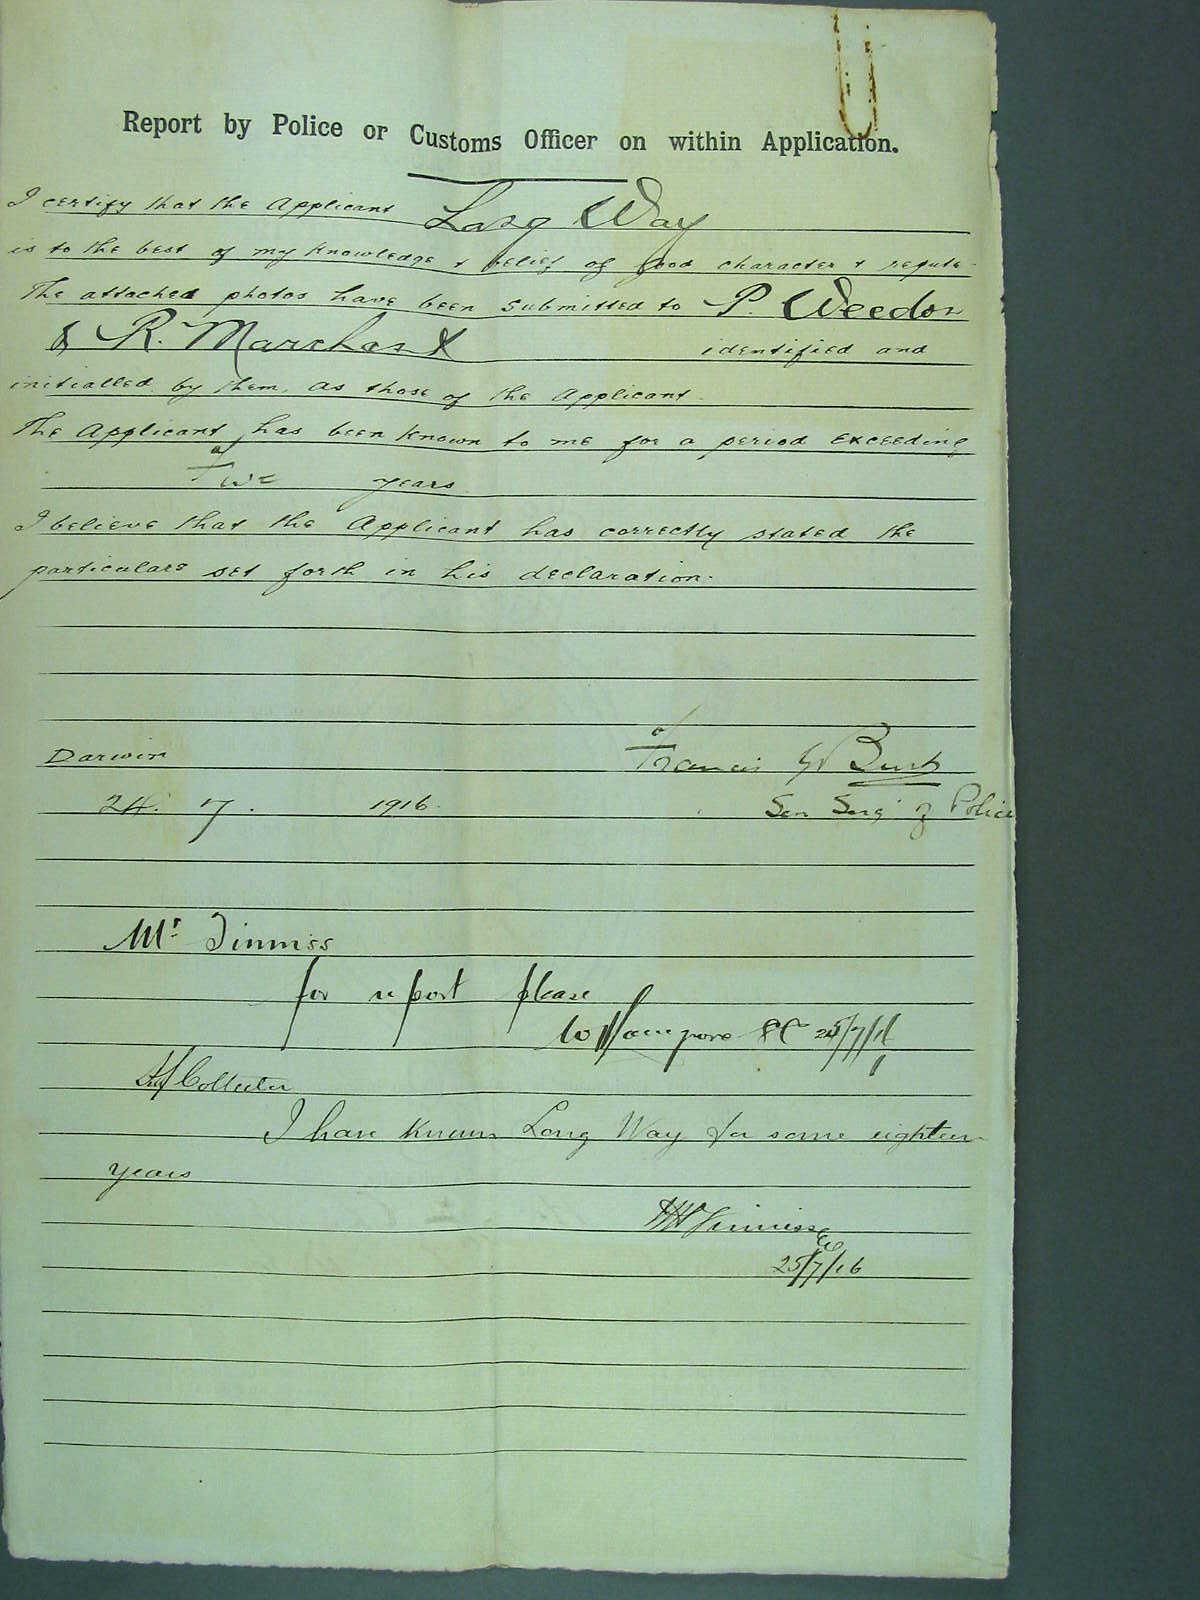 Report by Police or Customs Officer on within Application.
I certify that the Applicant Long Way
is to the best of my knowledge & belief of good character & repute.
The attached photos have been submitted to P. Weedon
& R. Marchant identified and
initialled by them, as those of the Applicant.
The Applicant has been known to me for a period exceeding
Two years
I believe that the Applicant has correctly stated the
particulars set forth in his declaration.
Darwin Francis G Burt
24. 7. 1916. Sen Serg of Police
Mr Finniss
for report please
25/7/16
Collector
I have known Long Way for some eighteen
years
Finniss
25/7/16